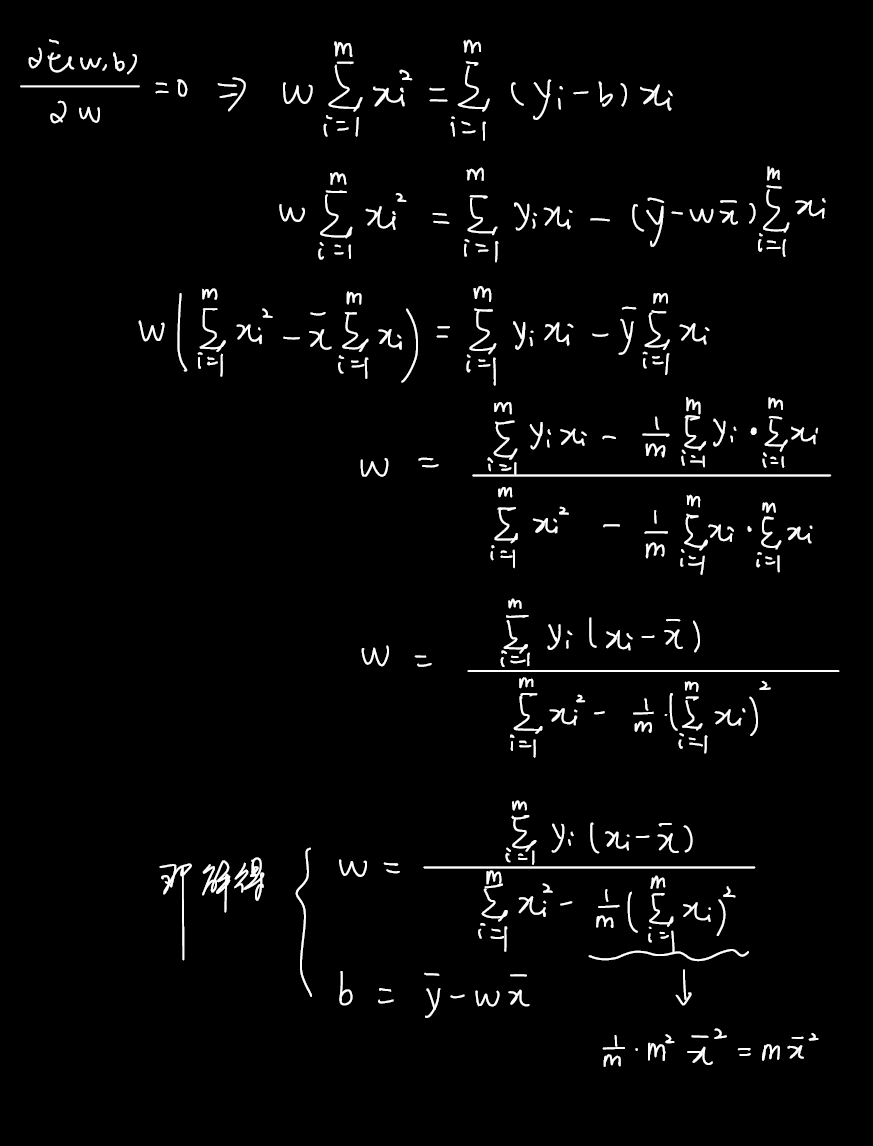 ∂E(w,b)/∂w = 0 ⇒ w ∑_{i=1}^{m} x_i² = ∑_{i=1}^{m} (y_i − b) x_i
w ∑_{i=1}^{m} x_i² = ∑_{i=1}^{m} y_i x_i − (ȳ − w x̄) ∑_{i=1}^{m} x_i
w ( ∑_{i=1}^{m} x_i² − x̄ ∑_{i=1}^{m} x_i ) = ∑_{i=1}^{m} y_i x_i − ȳ ∑_{i=1}^{m} x_i
w = ( ∑_{i=1}^{m} y_i x_i − 1/m ∑_{i=1}^{m} y_i · ∑_{i=1}^{m} x_i ) / ( ∑_{i=1}^{m} x_i² − 1/m ∑_{i=1}^{m} x_i · ∑_{i=1}^{m} x_i )
w = ( ∑_{i=1}^{m} y_i (x_i − x̄) ) / ( ∑_{i=1}^{m} x_i² − 1/m · ( ∑_{i=1}^{m} x_i )² )
解得 { w = ( ∑_{i=1}^{m} y_i (x_i − x̄) ) / ( ∑_{i=1}^{m} x_i² − 1/m ( ∑_{i=1}^{m} x_i )² )
b = ȳ − w x̄
↓
1/m · m² x̄² = m x̄²